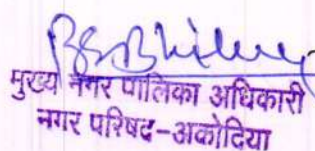 मुख्य नगर पालिका अधिकारी
नगर परिषद-अकोदिया